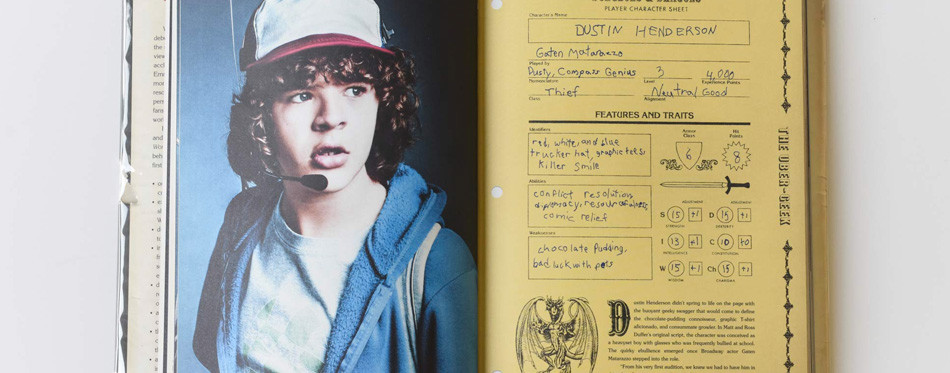 PLAYER CHARACTER SHEET
Character Name
DUSTIN HENDERSON
Gaten Matarazzo
Played by
Dusty, Compass Genius 3 4,000
Level Experience Points
Thief Neutral Good
Class Alignment
FEATURES AND TRAITS
Identifiers
red, white, and blue
trucker hat, graphic tees,
killer smile
Armor
Class
6
Hit
Points
8
Abilities
conflict resolution
diplomacy, resourcefulness,
comic relief
Weaknesses
chocolate pudding,
bad luck with pets
S 15 +1 D 15 +1
STRENGTH DEXTERITY
I 13 +1 C 10 +0
INTELLIGENCE CONSTITUTION
W 15 +1 Ch 15 +1
WISDOM CHARISMA
THE ÜBER-GEEK
Dustin Henderson didn't spring to life on the page with
the buoyant geeky swagger that would come to define
the chocolate-pudding connoisseur, graphic T-shirt
aficionado, and consummate growler. In Matt and Ross
Duffer's original script, the character was conceived as
a heavyset boy with glasses who was frequently bullied at school.
The quirky ebullience emerged once Broadway actor Gaten
Matarazzo stepped into the role.
"From his very first audition, we knew we had to have him in